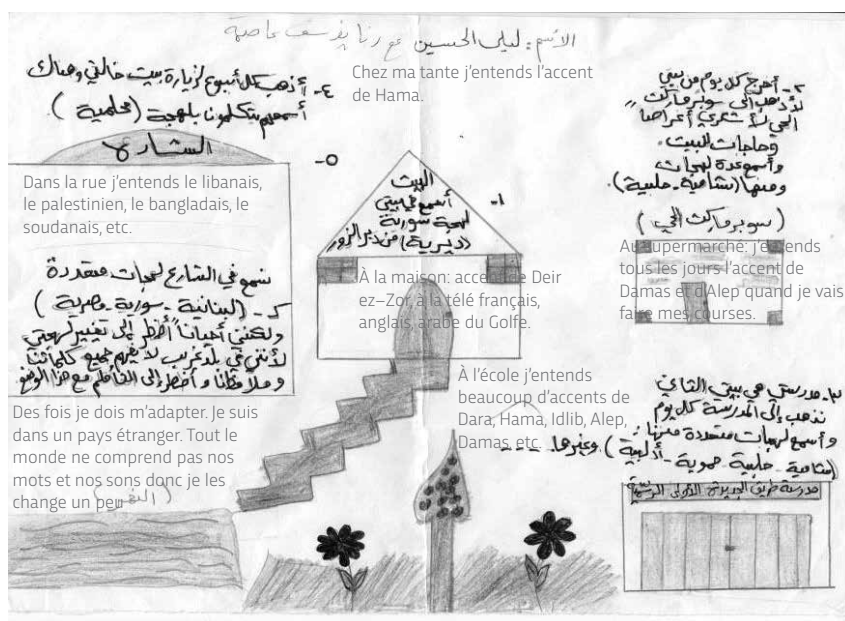 الاسم: ليلى الحسين
٤- أذهب كل أسبوع لزيارة بيت خالتي وهناك
أسمعهم يتكلمون بلهجة (محلية).
Chez ma tante j'entends l'accent
de Hama.
٢- أخرج كل يوم من بيتي
لأذهب إلى سوبر ماركت
الحي لأشتري أغراضاً
وحاجات البيت.
وأسمع عدة لهجات
ومنها (شامية - حلبية).
(سوبر ماركت الحي)
Au supermarché: j'entends
tous les jours l'accent de
Damas et d'Alep quand je vais
faire mes courses.
الشارع
Dans la rue j'entends le libanais,
le palestinien, le bangladais, le
soudanais, etc.
٥-
نسمع في الشارع لهجات متعددة
كـ - (لبنانية - سورية - مصرية)
ولكنني أحياناً أضطر إلى تغيير لهجتي
لأنني في بلد غريب لا يفهم جميع كلماتنا
وأضطر إلى التأقلم مع هذا الوضع
Des fois je dois m'adapter. Je suis
dans un pays étranger. Tout le
monde ne comprend pas nos
mots et nos sons donc je les
change un peu
١-
البيت
أسمع في بيتي
لهجة سورية
(ديرية) من دير الزور
À la maison: accent de Deir
ez–Zor, à la télé français,
anglais, arabe du Golfe.
À l'école j'entends
beaucoup d'accents de
Dara, Hama, Idlib, Alep,
Damas, etc.
٣- مدرستي هي بيتي الثاني
نذهب إلى المدرسة كل يوم
وأسمع لهجات متعددة منها:
(شامية - حلبية - حموية - أدلبية) وغيرها.....
مدرسة طريق الجديدة الأولى الرسمية